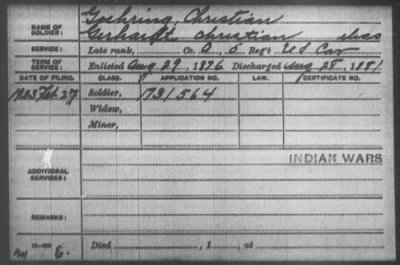 Goehring, Christian
NAME OF SOLDIER: Gerhardt Christian alias
SERVICE: Late rank, Co. A, 5 Reg't U S Cav
TERM OF SERVICE: Enlisted Aug 29, 1876 Discharged Aug 28, 1881
DATE OF FILING. CLASS. APPLICATION NO. LAW. CERTIFICATE NO.
1933 Feb 27 Soldier, 1731564
Widow,
Minor,
INDIAN WARS
ADDITIONAL SERVICES:
REMARKS:
6. Died , 1 , at